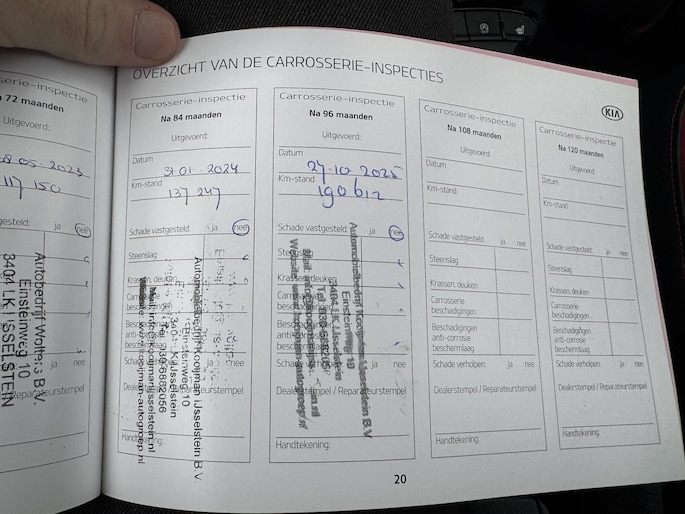 OVERZICHT VAN DE CARROSSERIE-INSPECTIES
KIA
serie-inspectie
a 72 maanden
Uitgevoerd:
8-05-2023
117 150
gesteld: ja nee
Autobedrijf Wolters B.V.
Einsteinweg 10
3404 LK IJSSELSTEIN
ja nee
Reparateurstempel
Carrosserie-inspectie
Na 84 maanden
Uitgevoerd:
Datum
31 01 2024
Km-stand
137 247
Schade vastgesteld: ja nee
Steenslag
Krassen, deuken
ja nee
Automobielbedrijf Kooijman IJsselstein B.V.
Einsteinweg 10
IJsselstein
Carrosserie-inspectie
Na 96 maanden
Uitgevoerd:
Datum
27-10 2025
Km-stand
190612
Schade vastgesteld: ja nee
Krassen, deuken
ja nee
Dealerstempel / Reparateurstempel
Automobielbedrijf Kooijman IJsselstein B.V.
Einsteinweg 10
3404 LK IJsselstein
Handtekening:
Carrosserie-inspectie
Na 108 maanden
Uitgevoerd:
Datum
Km-stand
Schade vastgesteld: ja nee
Steenslag
Krassen, deuken
Carrosserie
beschadigingen
Beschadigingen
anti-corrosie
beschermlaag
Schade verholpen: ja nee
Dealerstempel / Reparateurstempel
Handtekening:
Carrosserie-inspectie
Na 120 maanden
Uitgevoerd:
Datum
Km-stand
Schade vastgesteld: ja nee
Steenslag
Krassen, deuken
Carrosserie
beschadigingen
Beschadigingen
anti-corrosie
beschermlaag
Schade verholpen: ja nee
Dealerstempel / Reparateurstempel
Handtekening:
20